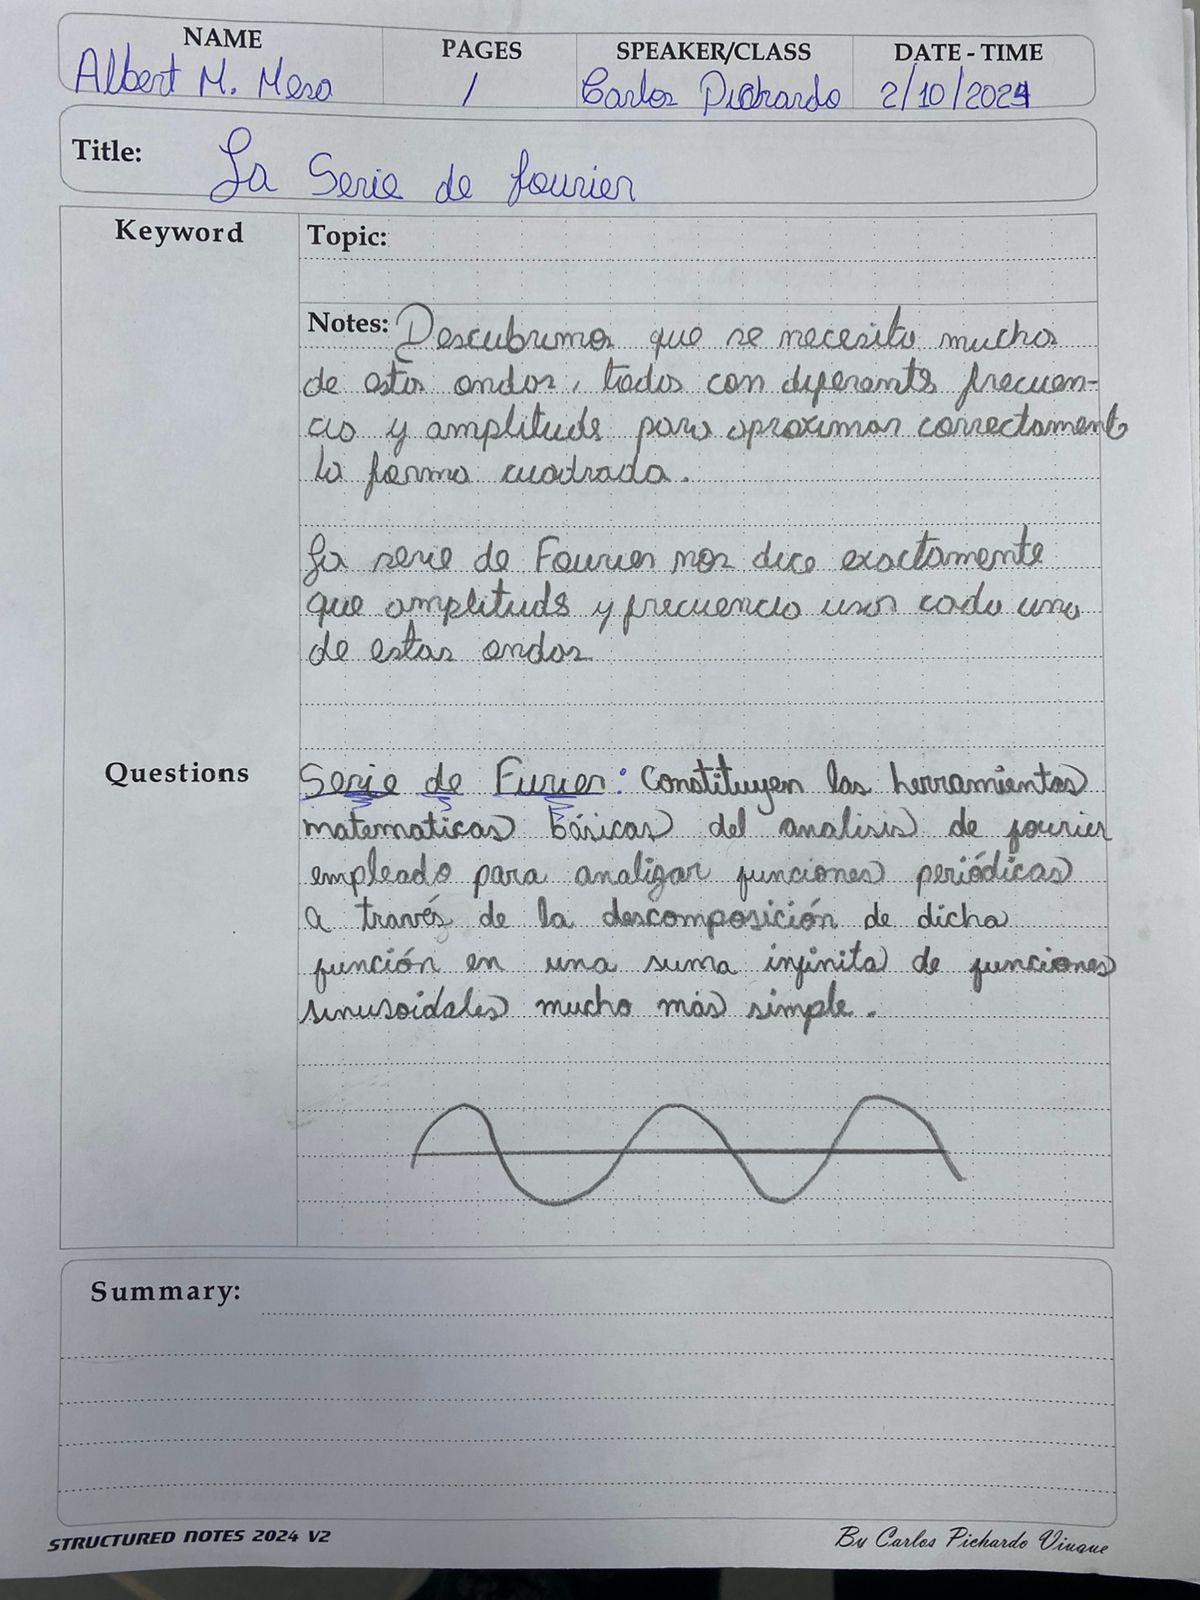 NAME
PAGES
SPEAKER/CLASS
DATE - TIME
Albert M. Mesa
1
Carlos Pichardo
2/10/2024
Title: La Serie de fourier
Keyword
Topic:
Notes: Descubrimos que se necesita muchas
de estas ondas, todas con diferents frecuen-
cia y amplituds para aproximar correctament
la forma cuadrada.
La serie de Fourier nos dice exactamente
que amplituds y frecuencia usar cada una
de estas ondas
Questions
Serie de Furier: Constituyen las herramientas
matematicas básicas del analisis de fourier
empleado para analizar funciones periódicas
a través de la descomposición de dicha
función en una suma infinita de funciones
sinusoidales mucho más simple.
Summary:
STRUCTURED NOTES 2024 V2
By Carlos Pichardo Viuque